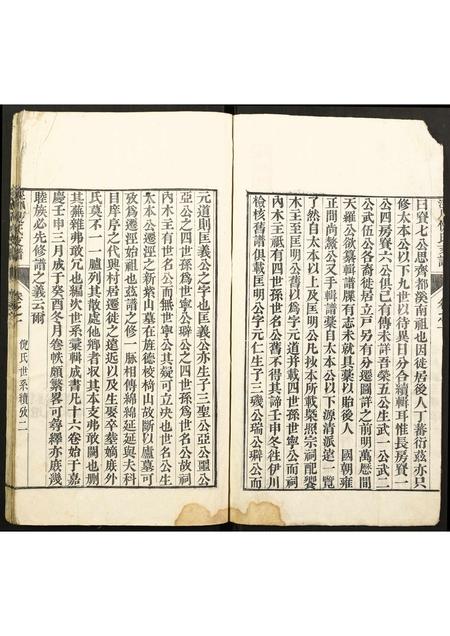 曰賚七公思齊都溪南祖也因徙居後人丁蕃衍茲亦只
修太本公以下九世以待異日分各續輯耳惟長房賚一
公四房賚六公俱已有傳未詳吾榮五公生武一公武二
公武伍公各裔徙居立戶另有分遷圖詳之前明萬曆間
天羅公欲纂輯譜牒有志未就其藁以貽後人　國朝雍
正間尚鰲公又手輯譜藁自太本公以下源清派遠一覽
了然自太本公以上及匡明公凡抄本所載榮照宗祠配饗
木主至匡明公舊以為字元道并載四世孫世寧公而祠
內木主祗有四世孫世名公舊不得其詳壬申冬往伊川
檢核舊譜俱載匡明公字元仁生子三殘公瑞公璣公而
元道則匡義公之字也匡義公亦生子三聖公亞公璽公
亞公之四世孫為世寧公璣公之四世孫為世名公故祠
內木主有世名公而無世寧公其疑可立决也世名公生
太本公遷涇之新紫山墓在旌德枝椅山故斷以盧墓可
攷為遷涇始祖也茲譜之修一脈相傳綿綿延延與夫科
目庠序之代興村居遷徙之遠近以及生娶卒葬嫡底外
氏莫不一一臚列其散處他鄉者収其本支弗敢闕也刪
其蕪雜弗敢冗也編次世系彙輯成書凡十六卷始于嘉
慶壬申三月成于癸酉冬月卷帙頗繁畧可尋繹亦庶幾
睦族必先修譜之義云爾
卷之一
倪氏世系續攷二